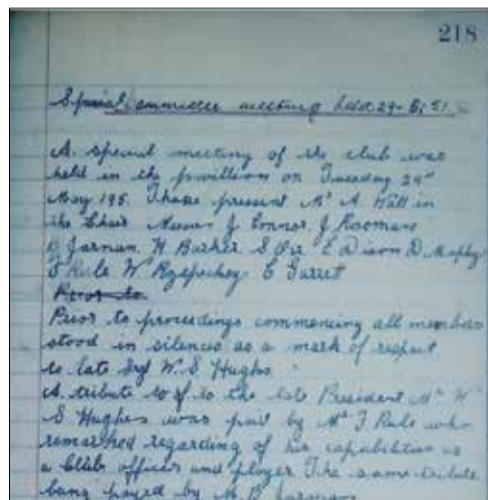 218
Special Committee meeting held 29-5-51.
A special meeting of the club was
held in the pavillion on Tuesday 29th
May 195. Those present Mr A. Watt in
the Chair Messrs J Connor, J
Jarman, H Barker, S Orr, E Dixon D. Murphy
J Rule W E Garret
Prior to
Prior to proceedings commencing all members
stood in silences as a mark of respect
to late W. S Hughs
A. tribute to the late President Mr W
S Hughes was paid by Mr J Rule who
remarked regarding of his capabilities as
a Club officer and player The same tribute
bang payed by Mr